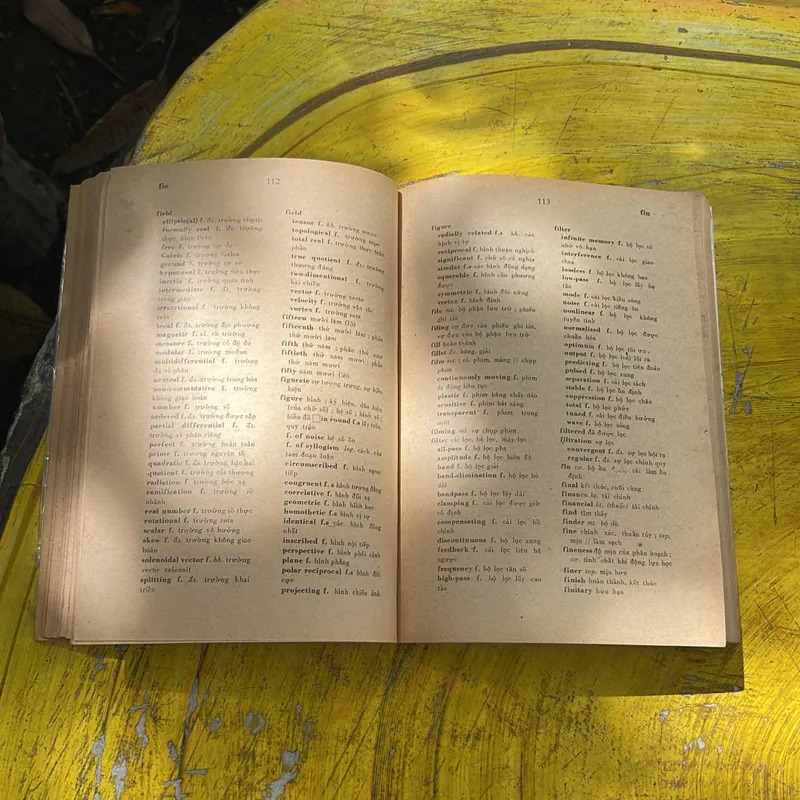 fie
112
field
elliptic(al) f. đs. trường eliptic
formally real f. đs. trường
thực hình thức
free f. trường tự do
Galois f. trường Galoa
ground f. trường cơ sở
hyper-real f. trường siêu thực
inertia f. trường quán tính
intermediate f. đs. trường
trung gian
irrotational f. trường không
rota
local f. đs. trường địa phương
magnetic f. vl. từ trường
measure f. trường có độ đo
modular f. trường môđun
multidifferential f. trường
đa vi phân
neutral f. đs. trường trung hòa
non-commutative f. trường
không giao hoán
number f. trường số
ordered f. đs. trường được sắp
partial differential f. đs.
trường vi phân riêng
perfect f. trường hoàn toàn
prime f. trường nguyên tố
quadratic f. đs. trường bậc hai
quotient f. đs. trường các thương
radiation f. trường bức xạ
ramification f. trường rẽ
nhánh
real number f. trường số thực
rotational f. trường rota
scalar f. trường vô hướng
skew f. đs. trường không giao
hoán
solenoidal vector f. hh. trường
vectơ xolenoit
splitting f. đs. trường khai
triển
field
tensor f. hh. trường tenxơ
topological f. trường tôpô
total real f. trường thực toàn
phần
true quotient f. đs. trường
thương đúng
two-dimentional f. trường
hai chiều
vector f. trường vectơ
velocity f. trường vận tốc
vortex f. trường rota
fifteen mười lăm (15)
fifteenth thứ mười lăm ; phần
thứ mười lăm
fifth thứ năm ; phần thứ năm
fiftieth thứ năm mươi ; phần
thứ năm mươi
fifty năm mươi (50)
figurate sự tượng trưng, sự biểu
hiện
figure hình ; ký hiệu, dấu hiệu
(của chữ số) ; hệ số ; hình vị ;
biểu đồ in round f.s lấy tròn,
quy tròn
f. of noise hệ số ồn
f. of syllogism log. cách của
tam đoạn luận
circumscribed f. hình ngoại
tiếp
congruent f.s hình tương đẳng
correlative f. hình đối xạ
geometric f. hình hình học
homothetic f.s hình vị tự
identical f.s các hình đồng
nhất
inscribed f. hình nội tiếp
perspective f. hình phối cảnh
plane f. hình phẳng
polar reciprocal f.s hình đối
cực
projecting f. hình chiếu ảnh
113
fin
figure
radially related f.s hh. các
hình vị tự
reciprocal f. hình thuận nghịch
significant f. chữ số có nghĩa
similar f.s các hình đồng dạng
squarable f. hình cầu phương
được
symmetric f. hình đối xứng
vertex f. hình đỉnh
file mt. bộ phận lưu trữ ; phiếu
ghi tên
filing sự đưa vào phiếu ghi tên,
sự đưa vào bộ phận lưu trữ
fill hoàn thành
fillet đs. băng, giải
film mt ; cl. phim, màng // chụp
phim
continuously moving f. phim
di động liên tục
plastic f. phim bằng chất dẻo
sensitive f. phim bắt sáng
transparent f. phim trong
suốt
filming mt. sự chụp phim
filter cái lọc, bộ lọc, máy lọc
all-pass f. bộ lọc pha
amplitude f. bộ lọc biên độ
band f. bộ lọc giải
band-elimination f. bộ lọc bỏ
dải
bandpass f. bộ lọc lấy dải
clamping f. cái lọc được giữ
cố định
compensating f. cái lọc bổ
chính
discontinuous f. bộ lọc xung
feedback f. cái lọc liên hệ
ngược
frequency f. bộ lọc tần số
high-pass f. bộ lọc lấy cao
tần
filter
infinite memory f. bộ lọc có
nhớ vô hạn
interference f. cái lọc giao
thoa
lossless f. bộ lọc không hao
low-pass f. bộ lọc lấy hạ
tần
mode f. cái lọc kiểu sóng
noise f. cái lọc tiếng ồn
nonlinear f. bộ lọc không
tuyến tính
normalized f. bộ lọc được
chuẩn hóa
optimum f. bộ lọc tối ưu
output f. bộ lọc (có) lối ra
predicting f. bộ lọc tiên đoán
pulsed f. bộ lọc xung
separation f. cái lọc tách
stable f. bộ lọc ổn định
suppression f. bộ lọc chắn
total f. bộ lọc phức
tuned f. cái lọc điều hưởng
wave f. bộ lọc sóng
filtered đã được lọc
filtration sự lọc
convergent f. đs. sự lọc hội tụ
regular f. đs. sự lọc chính quy
fin cơ. bộ ổn cái làm ổn
định
final kết thúc, cuối cùng
finance kt. tài chính
financial kt. (thuộc) tài chính
find tìm thấy
finder mt. bộ dò
fine chính xác, thuần túy ; top.
mịn // làm sạch
fineness độ mịn của phân hoạch ;
cơ. tính chất khí động lực học
finer top. mịn hơn
finish hoàn thành, kết thúc
finitary hữu hạn